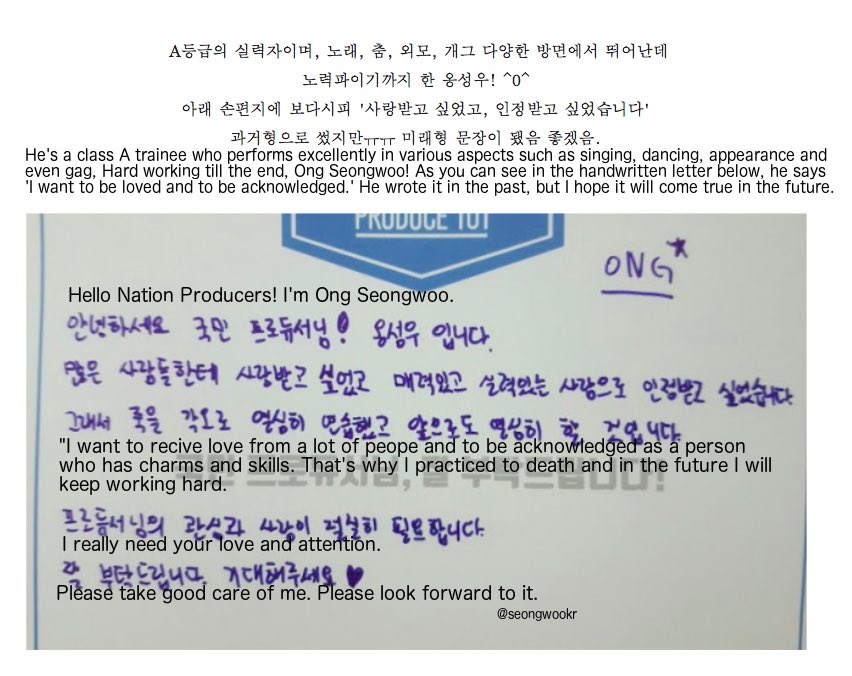 A등급의 실력자이며, 노래, 춤, 외모, 개그 다양한 방면에서 뛰어난데
노력파이기까지 한 옹성우! ^0^
아래 손편지에 보다시피 '사랑받고 싶었고, 인정받고 싶었습니다'
과거형으로 썼지만ㅠㅠ 미래형 문장이 됐음 좋겠음.
He's a class A trainee who performs excellently in various aspects such as singing, dancing, appearance and
even gag, Hard working till the end, Ong Seongwoo! As you can see in the handwritten letter below, he says
'I want to be loved and to be acknowledged.' He wrote it in the past, but I hope it will come true in the future.
PRODUCE 101
ONG
Hello Nation Producers! I'm Ong Seongwoo.
안녕하세요 국민 프로듀서님! 옹성우 입니다.
많은 사람들한테 사랑받고 싶었고 매력있고 실력있는 사람으로 인정받고 싶었습니다
그래서 죽을 각오로 열심히 연습했고 앞으로도 열심히 할 것입니다
"I want to recive love from a lot of peope and to be acknowledged as a person
who has charms and skills. That's why I practiced to death and in the future I will
keep working hard.
국민 프로듀서님, 잘 부탁드립니다!
프로듀서님의 관심과 사랑이 절실히 필요합니다.
I really need your love and attention.
잘 부탁드립니다. 기대해주세요 ♥
Please take good care of me. Please look forward to it.
@seongwookr